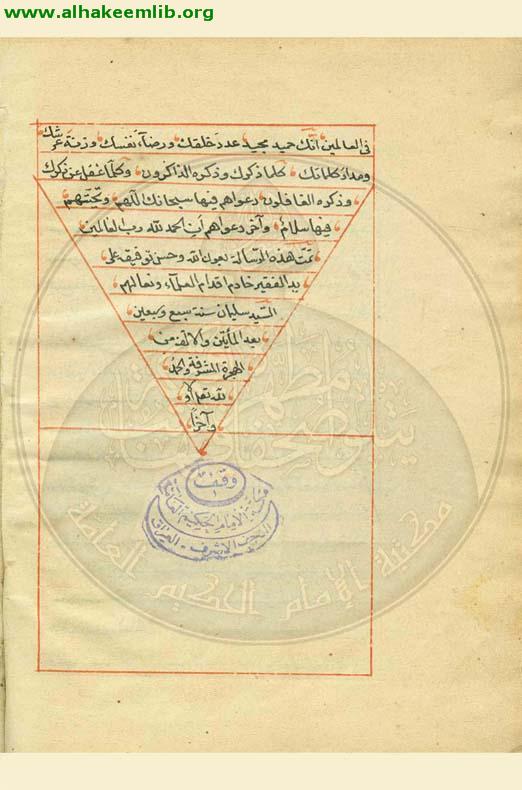 www.alhakeemlib.org
فى العالمين انّك حميد مجيد عدد خلقك ورضاء نفسك وزنة عرشك
ومداد كلماتك كلما ذكرك وذكره الذاكرون وكلما غفل عن ذكرك
وذكره الغافلون دعواهم فيها سبحانك اللهم وتحيّتهم
فيها سلام وآخر دعواهم أن الحمد لله رب العالمين
تمّت هذه الرسالة بعون الله وحسن توفيقه على
يد الفقير خادم اقدام العلمآء ونعالهم
السيد سليمان سنة سبع وسبعين
بعد المأتين والالف من
الهجرة المشرفة والحمد
لله تعالى أولا
وآخراً
وقف
مكتبة الإمام الحكيم العامة
النجف الاشرف - العراق
مكتبة الإمام الحكيم العامة